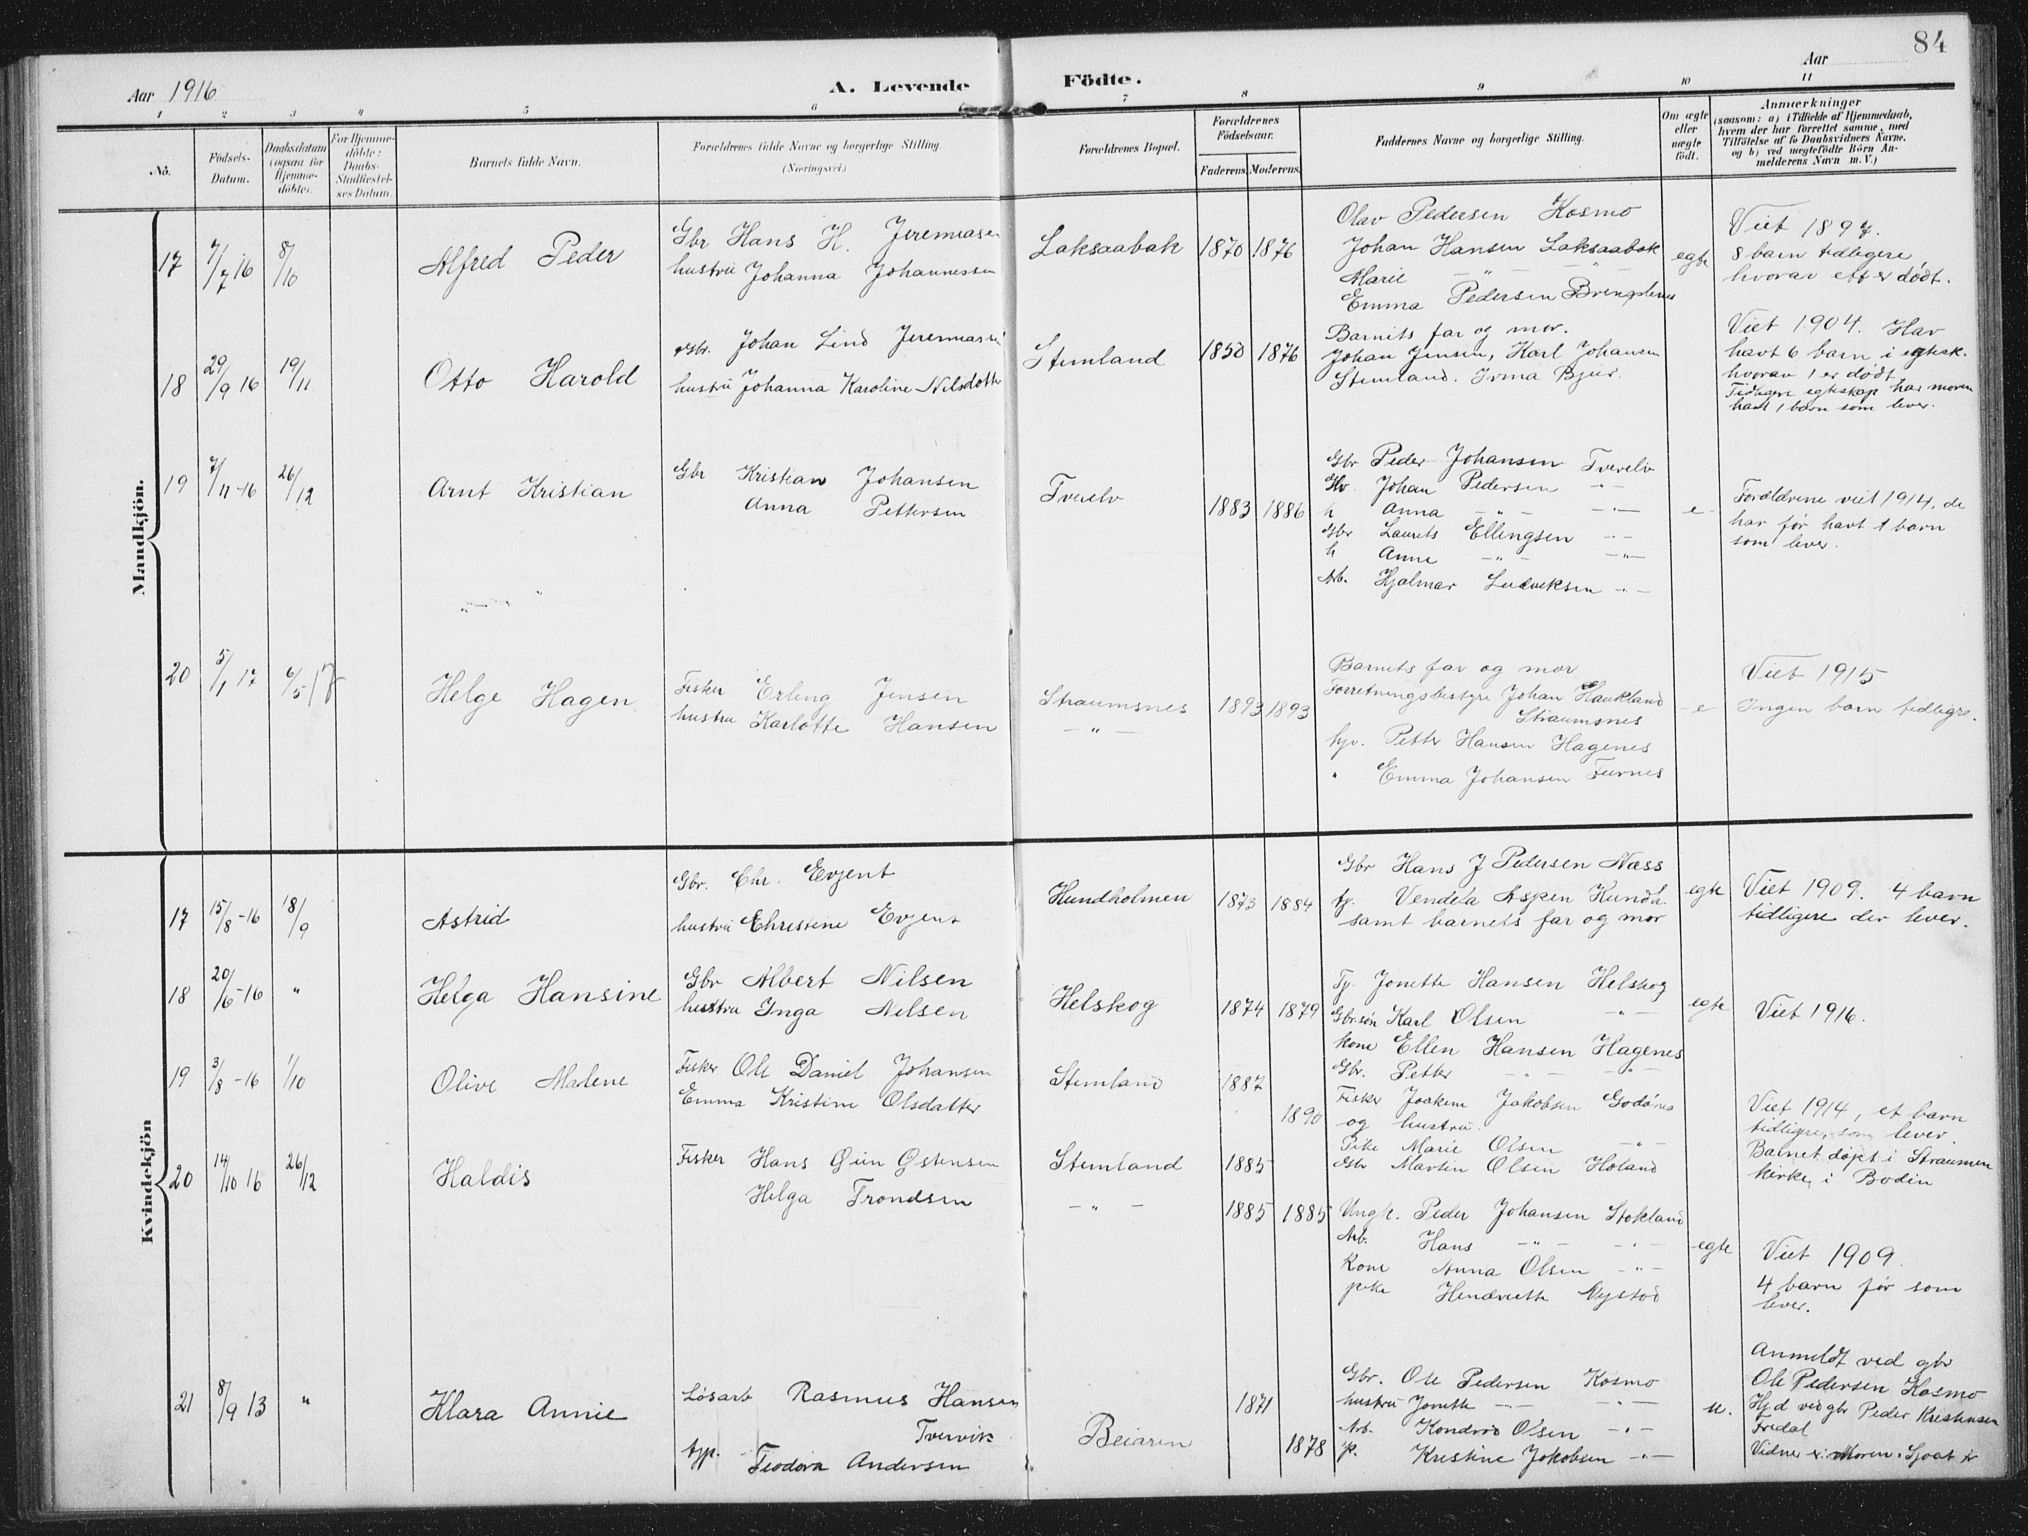 84
Aar 1916
A. Levende Födte.
Aar
1 2 3 4 5 6 7 8 9 10 11
No.
Födsels-Datum.
Daabsdatum (ogsaa for Hjemme-döbte).
For Hjemme-döbte: Daabs-Stadfæstel-ses Datum.
Barnets fulde Navn.
Forældrenes fulde Navne og borgerlige Stilling. (Næringsvei.)
Forældrenes Bopæl.
Forældrenes Födselsaar.
Faderens. Moderens.
Faddernes Navne og borgerlige Stilling.
Om ægte eller uægte födt.
Anmærkninger (saasom: a) i Tilfælde af Hjemmedaab, hvem der har forrettet samme, med Tilföielse af to Daabsvidners Navne, og b) ved uægtefödte Börn Anmelderens Navn m. V.)
Mandkjön.
17 7/7 16 8/10 Alfred Peder
Gbr Hans H. Jeremiasen
hustru Johanna Johannessen
Laksaabak 1870 1876
Olav Pedersen Kosmo
Johan Hansen Laksaabak
Marie — " — —
Emma Pedersen Bringslines
egte
Viet 1897.
8 barn tidligere
hvorav ett er dødt.
18 29/9 16 19/11 Otto Harold
Gbr. Johan Lind Jeremiassen
hustru Johanna Karoline Nilsdotter
Stemland 1850 1876
Barnets far og mor.
Johan Jensen, Karl Johansen
Stemland. Irma Bjur.
Viet 1904. Har
havt 6 barn i egtesk.
hvorav 1 er dødt
Tidligere egteskap har moren
havt 1 barn som lever.
19 7/11-16 26/12 Arnt Kristian
Gbr Kristian Johansen
Anna Pettersen
Tverelv 1883 1886
Gbr Peder Johansen Tverelv
Gbr. Johan Pedersen - " -
h Anna - " - - " -
Gbr Laurits Ellingsen - " -
h Anne - " - - " -
Arb. Hjalmar Ludviksen - " -
e
Forældrene viet 1914, de
har før havt 1 barn
som lever.
20 5/1 17 6/5 17 Helge Hagen
Fisker Erling Jensen
hustru Karlotte Hansen
Straumsnes 1893 1893
— " —
Barnets far og mor
Forretningsbestyr Johan Haukland
Straumsnes
hjv. Petter Hansen Hagenes
" Emma Johansen Furnes
e
Viet 1915
Ingen barn tidligre.
Kvindekjön
17 15/8-16 18/9 Astrid
Gbr. Chr. Evjent
hustru Christine Evjent
Hundholmen 1873 1884
Gbr Hans J Pedersen Næss
tj. Vendela Aspen Hundh.
samt barnets far og mor
egte
Viet 1909. 4 barn
tidligere der lever.
18 20/6-16 " Helga Hansine
Gbr Albert Nilsen
hustru Inga Nilsen
Helskog 1874 1879
Tj. Jonette Hansen Helskog
Gbrsøn Karl Olsen - " -
kone Ellen Hansen Hagenes
Gbr. Petter - " - - " -
egte
Viet 1916.
19 3/8-16 1/10 Olive Malene
Fisker Ole Daniel Johansen
Emma Kristine Olsdatter
Stemland 1887
1890
Fisker Joakim Jakobsen Godønes
og hustru.
Pike Marie Olsen - " -
Gbr Martin Olsen Høland
Viet 1914, et barn
tidligere, som lever.
Barnet døpt i Straumen
kirke i Bodin
20 14/10 16 26/12 Haldis
Fisker Hans Østensen
Helga Trondsen
Stemland 1885
— " — 1885 1885
Ungk. Peder Johansen Stokland
Arb. Hans - " - - " -
Kone Anna Olsen - " -
pike Hendrette Nystad
egte
Viet 1909
4 barn før som
lever.
21 8/9 13 " Klara Annie
Løsarb Rasmus Hansen
Tvervik
typ. Teodora Andersen
Beiaren
1871
1878
Gbr. Ole Pedersen Kosmo
hustru Jonette - " - - " -
Arb. Kondrad Olsen - " -
p. Kristine Jakobsen - " -
u.
Anmeldt ved gbr
Ole Pedersen Kosmo
Hj.d ved gbr Peder Kristensen
Tredal
Vidner er: Moren